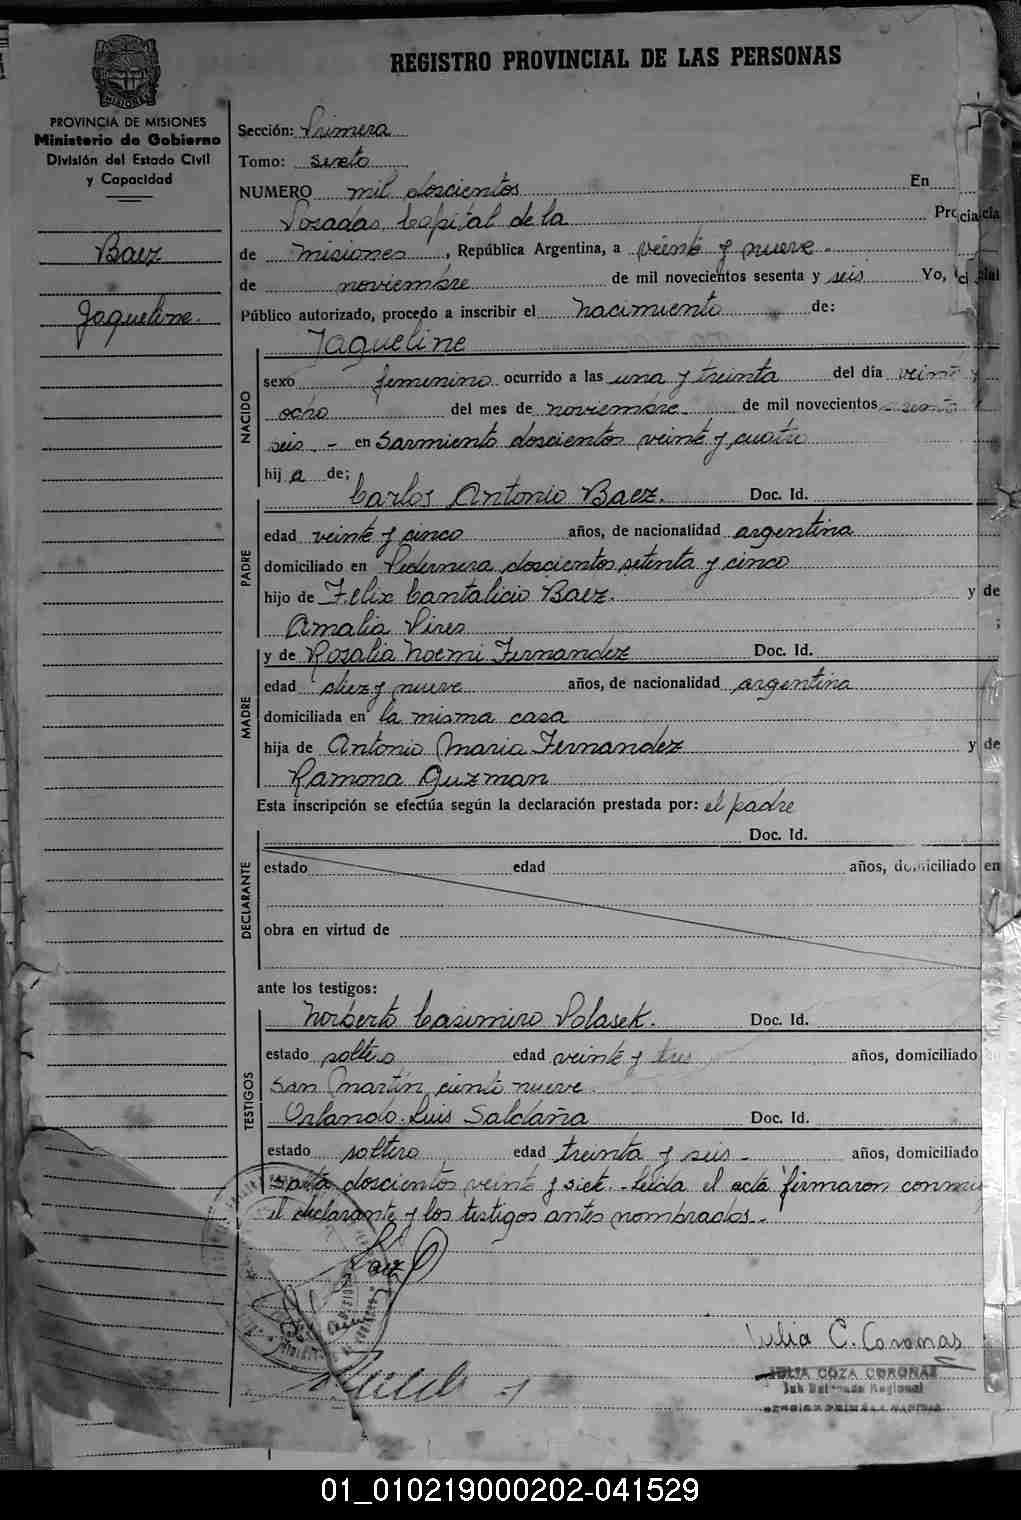 REGISTRO PROVINCIAL DE LAS PERSONAS
MISIONES
PROVINCIA DE MISIONES
Ministerio de Gobierno
División del Estado Civil
y Capacidad
Baez
Jaqueline.
Sección: Primera
Tomo: sexto
NUMERO mil doscientos En
Posadas, Capital de la Pro cia
de misiones, República Argentina, a veinte y nueve.
de noviembre de mil novecientos sesenta y seis Yo,
Público autorizado, procedo a inscribir el nacimiento de:
Jaqueline
NACIDO
sexo femenino ocurrido a las una y treinta del día veinte y
ocho del mes de noviembre de mil novecientos
seis. - en Sarmiento doscientos veinte y cuatro
hij a de;
Carlos Antonio Baez. Doc. Id.
PADRE
edad veinte y cinco años, de nacionalidad argentina
domiciliado en Pedernera doscientos setenta y cinco
hijo de Felix Cantalicio Baez. y de
Amalia Pires ;
y de Rosalia Noemi Fernandez Doc. Id.
MADRE
edad diez y nueve años, de nacionalidad argentina
domiciliada en la misma casa
hija de Antonio Maria Fernandez y de
Ramona Guzman
Esta inscripción se efectúa según la declaración prestada por: el padre
Doc. Id.
DECLARANTE
estado edad años, domiciliado en
obra en virtud de
ante los testigos:
Norberto Casimiro Polasek. Doc. Id.
TESTIGOS
estado soltero edad veinte y tres años, domiciliado
San Martín ciento nueve
Orlando Luis Saldaña Doc. Id.
estado soltero edad treinta y seis - años, domiciliado
Salta doscientos veinte y siete. - Leída el acta firmaron conmigo
el declarante y los testigos antes nombrados. -
Baez
Julia C. Coronas
JULIA COZA CORONAS
Sub Delegada Regional
01_010219000202-041529